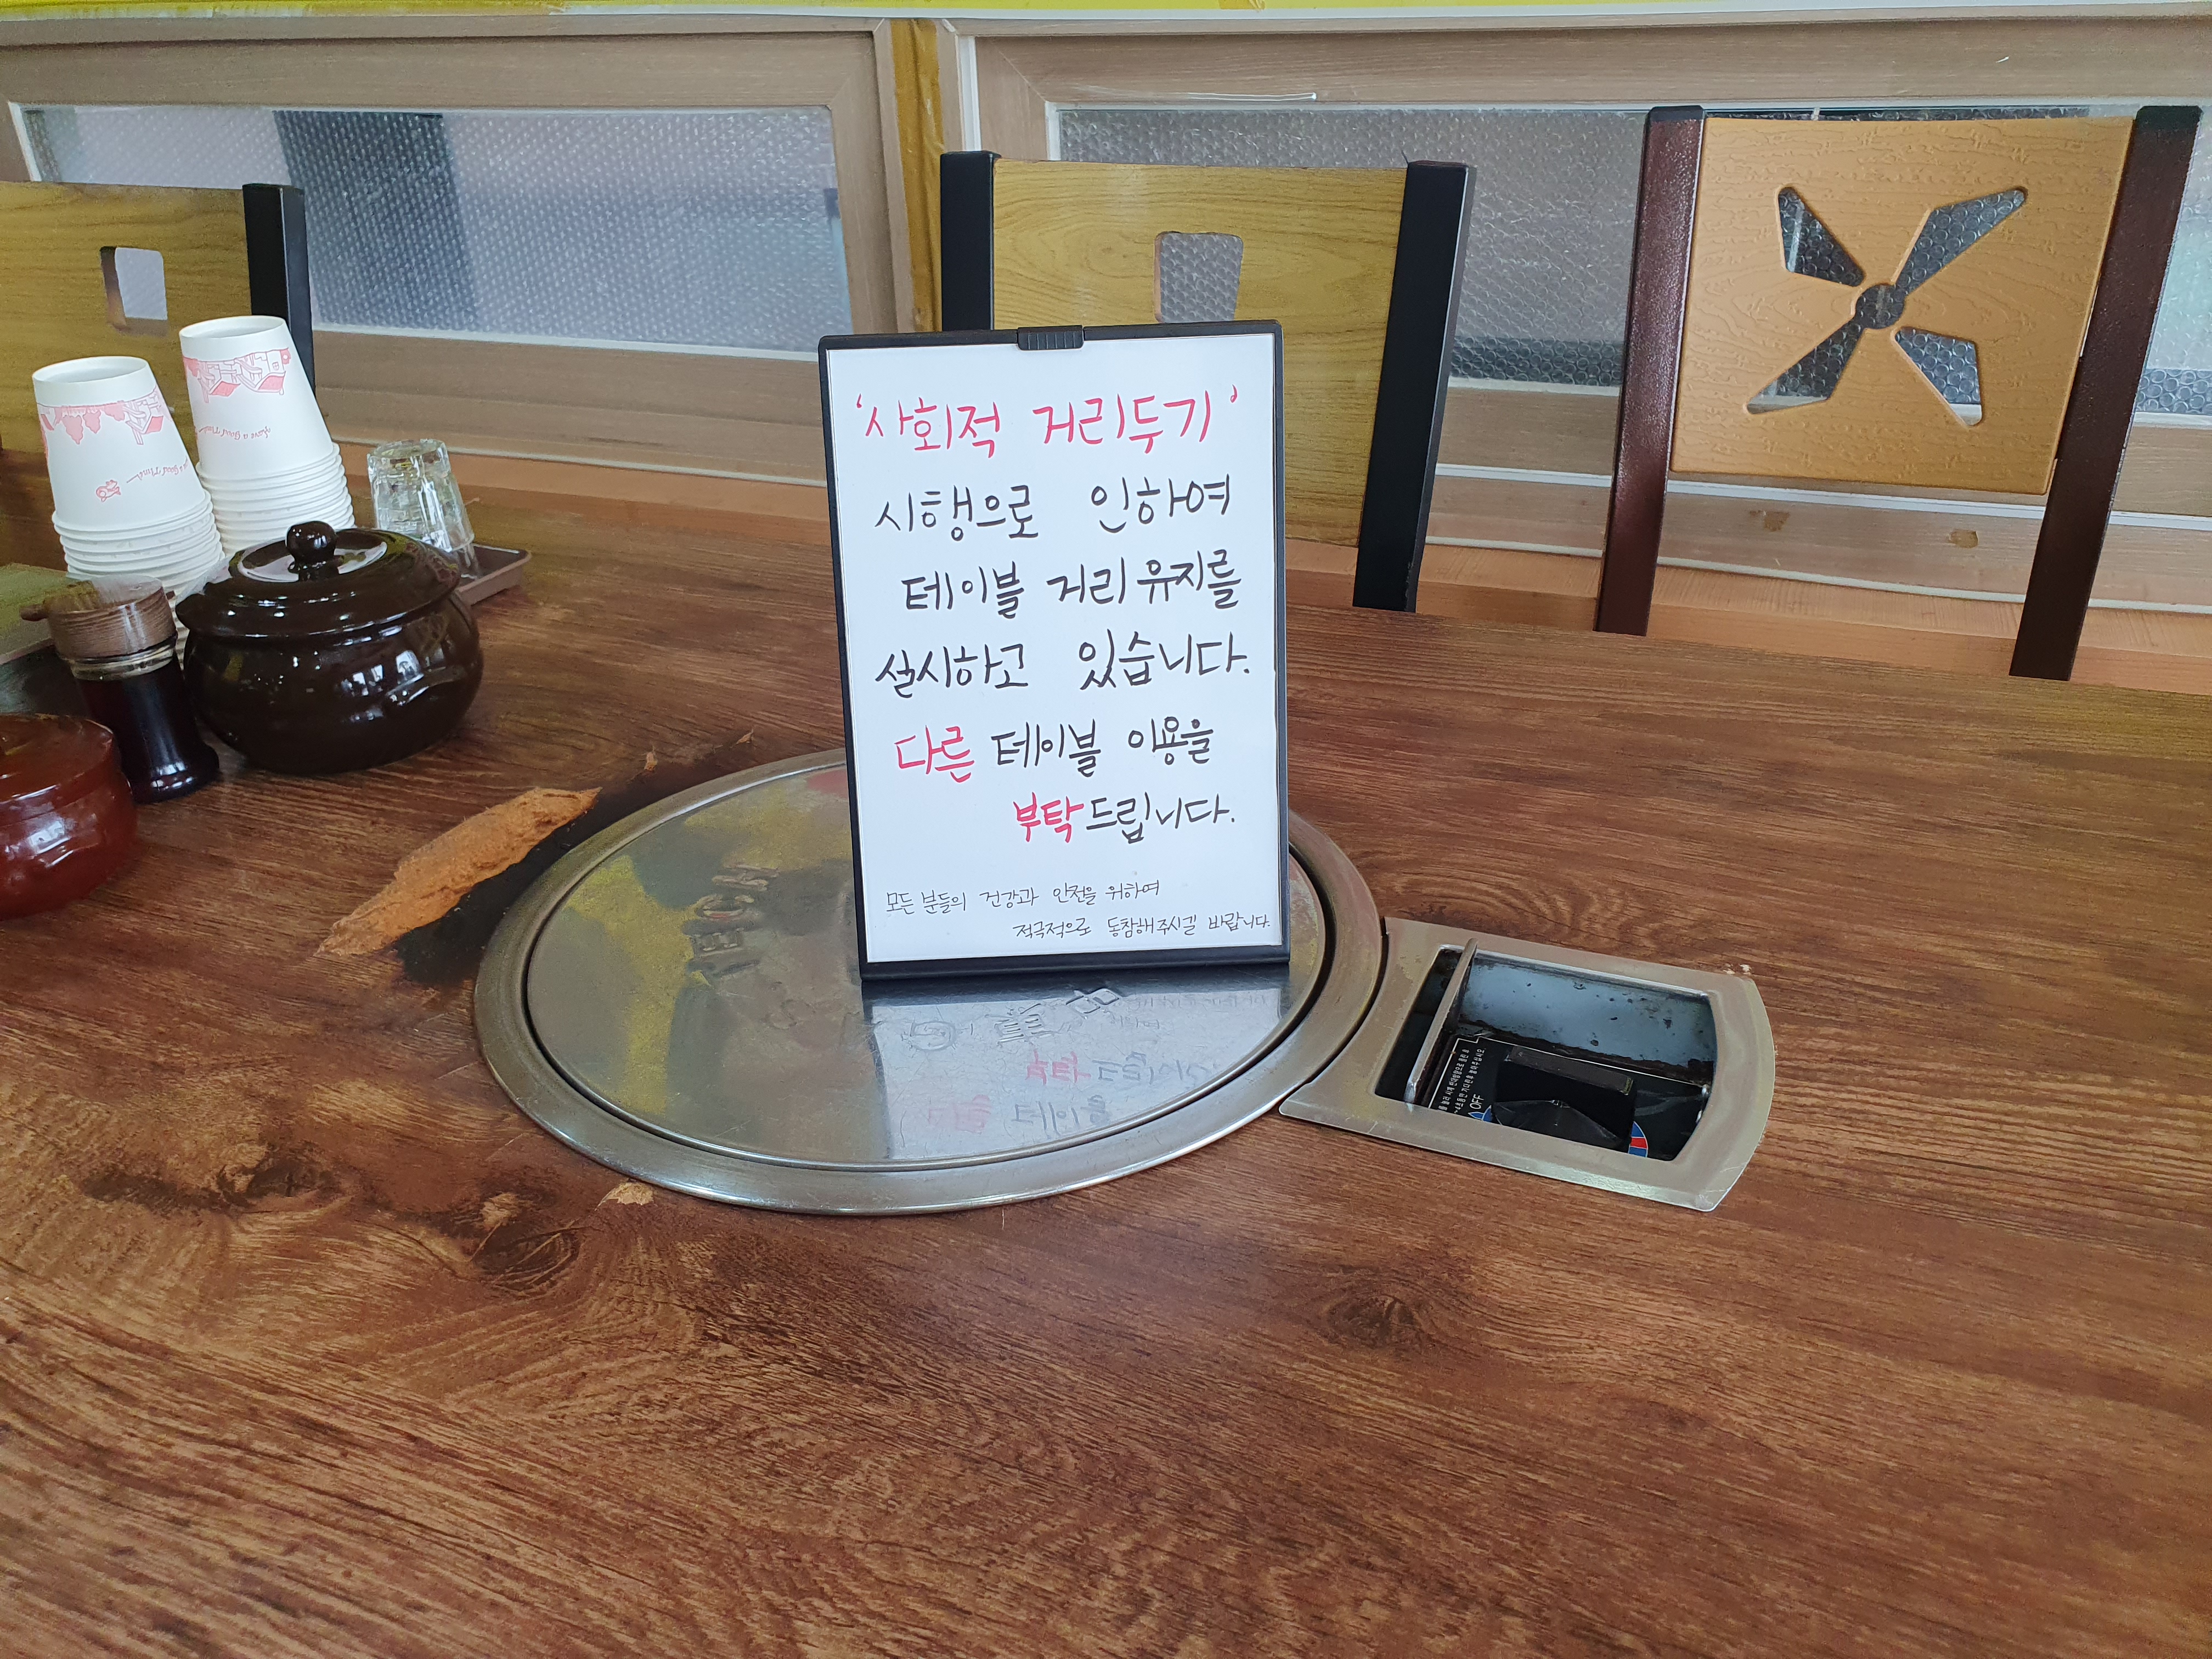 '사회적 거리두기'
시행으로 인하여
테이블 거리 유지를
실시하고 있습니다.
다른 테이블 이용을
부탁드립니다.
모든 분들의 건강과 안전을 위하여
적극적으로 동참해주시길 바랍니다.
Have a Good Time
OFF